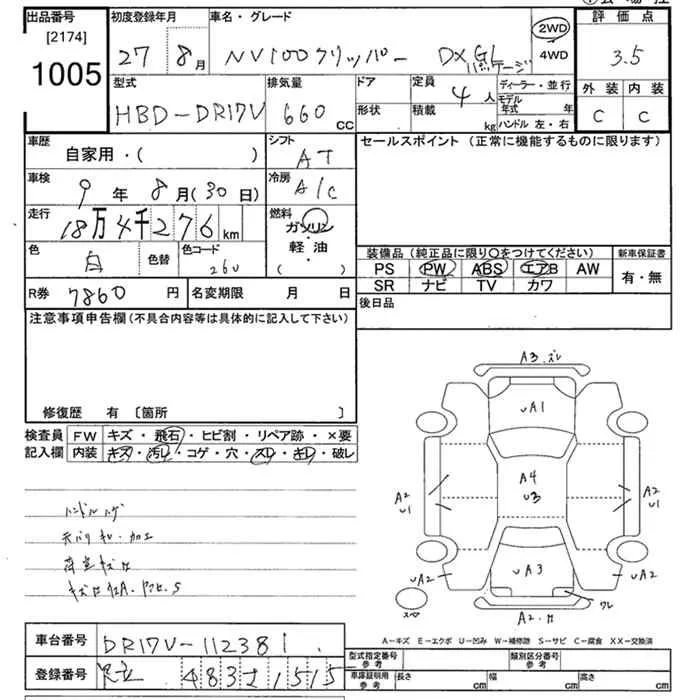 出品番号 初度登録年月 車名・グレード 評価点
[2174] 27 8月 NV100クリッパー DX GLパッケージ 2WD 4WD 3.5
1005 型式 排気量 ドア 定員 ディーラー・並行 外装 内装
HBD-DR17V 660 CC 形状 積載 4人 kg モデル年式 年 ハンドル 左・右 C C
車歴 自家用・( ) シフト AT セールスポイント(正常に機能するものに限ります)
車検 9年 8月(30日) 冷房 A/C
走行 18万4千276km 燃料 ガソリン 軽・油 ( )
色 白 色替 色コード 260
装備品(純正品に限り○をつけてください) 新車保証書
PS PW ABS エアB AW 有・無
SR ナビ TV カワ
R券 7860円 名変期限 月 日 後日品
注意事項申告欄(不具合内容等は具体的に記入して下さい)
修復歴 有 〔箇所 〕
検査員 FW キズ・飛石・ヒビ割・リペア跡・×要
記入欄 内装 キズ・汚レ・コゲ・穴・スレ・キレ・破レ
ハンドルハゲ
天バリキレ・加工
荷室キズ凹
A3.ズレ
UA1
A4
U3
A2
U1
A2
U1
UA2
UA3
UA2
ワレ
スペア
A2.凹
A-キズ E-エクボ U-凹み W-補修跡 S-サビ C-腐食 XX-交換済
車台番号 DR17V-112381 型式指定番号 参考 類別区分番号 参考
登録番号 足立 483 さ 1515 車庫証明用 参考 長さ cm 幅 cm 高さ cm